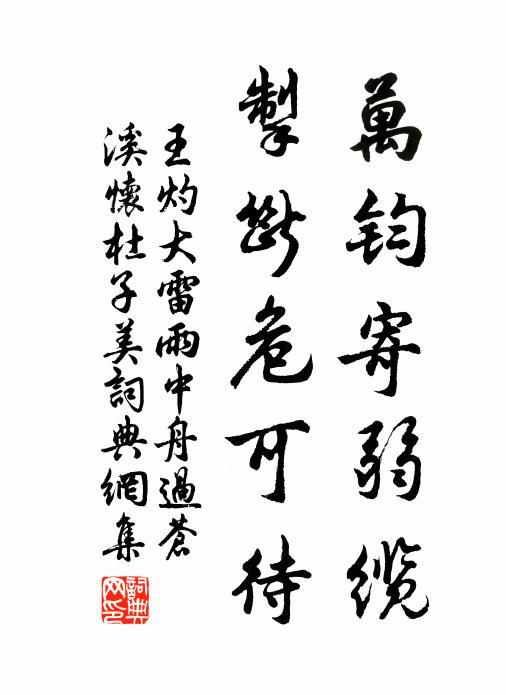 萬鈞寄弱纜
掣斷危可待
王灼大雷雨中舟過蒼
溪懷杜子美詞典網集
詞典
网印